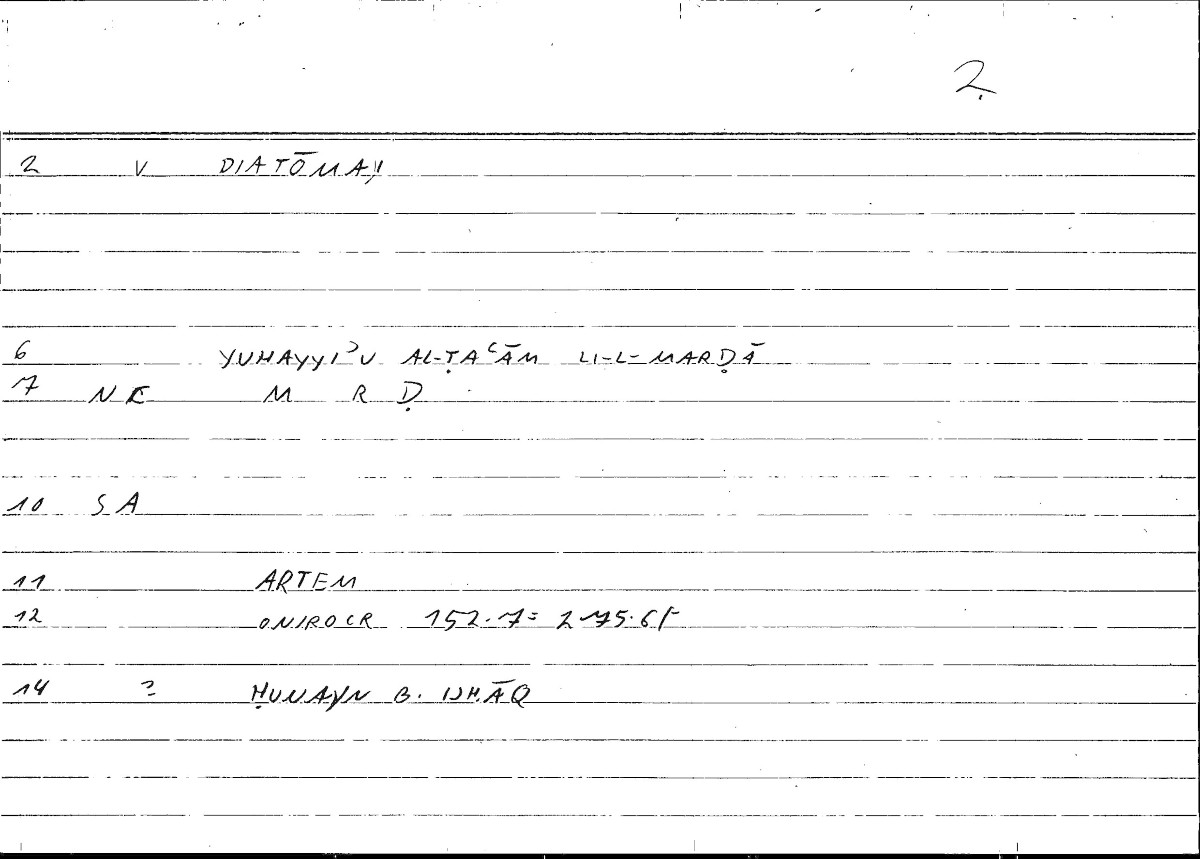 2.
2 V DIATŌMAI
6 YUHAYYIʾU AL-ṬAʿĀM LI-L-MARḌĀ
7 NE M R Ḍ
10 SA
11 ARTEM
12 ONIROCR 152.7= 275.6F
14 ? ḤUNAYN B. ISḤĀQ